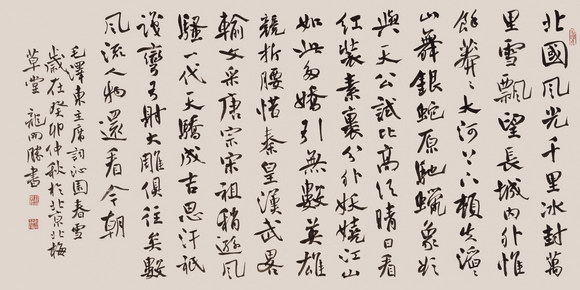 北國風光千里冰封萬
里雪飄望長城內外惟
餘莽〻大河上下頓失滔〻
山舞銀蛇原馳蠟象欲
與天公試比高須晴日看
紅裝素裹分外妖嬈江山
如此多嬌引無數英雄
競折腰惜秦皇漢武略
輸文采唐宗宋祖稍遜風
騷一代天驕成吉思汗祇
識彎弓射大雕俱往矣數
風流人物還看今朝
毛澤東主席詞沁園春雪
歲在癸卯仲秋於北京北梅
草堂 龍勝書